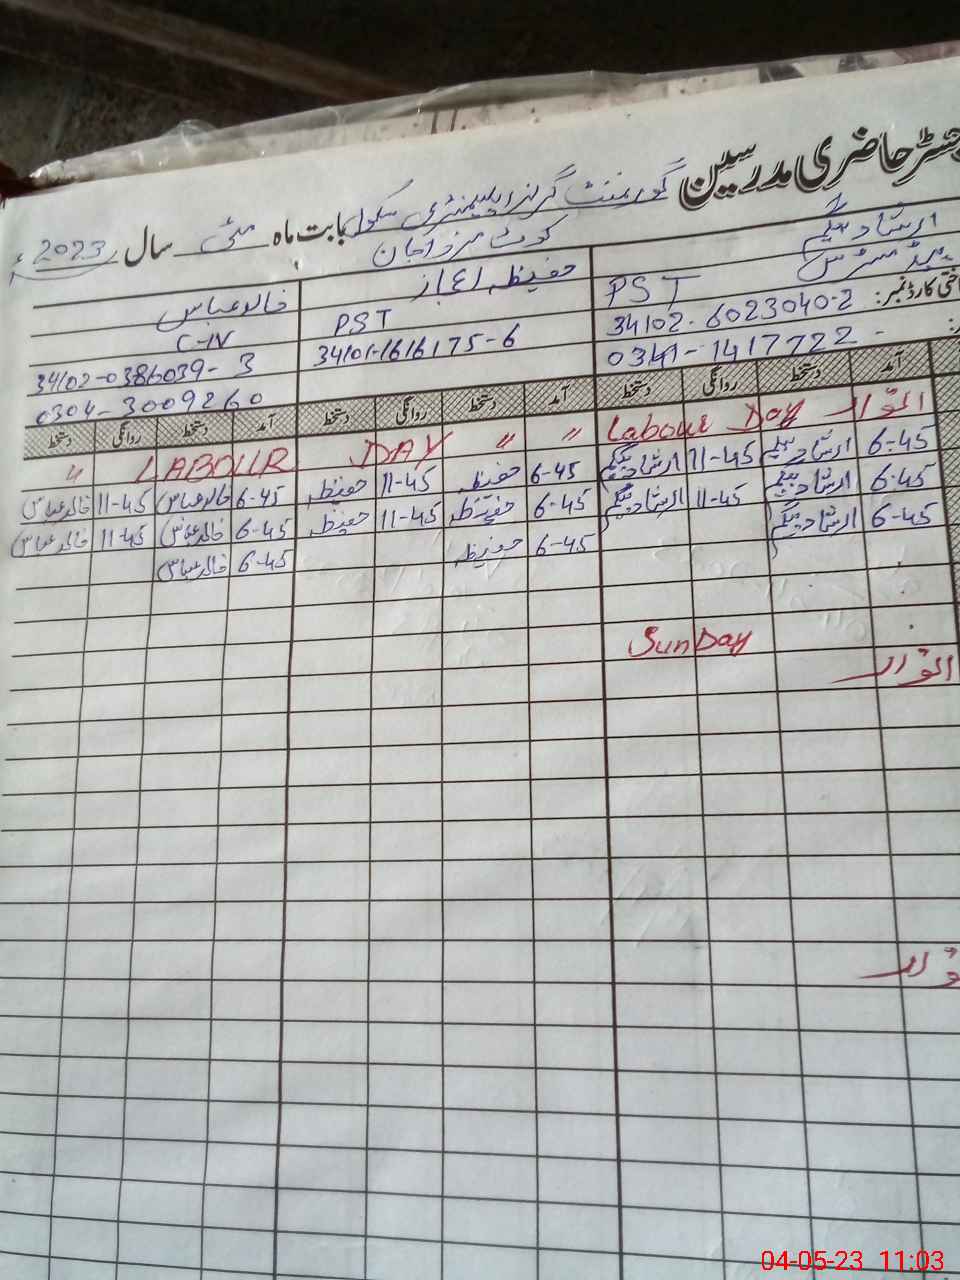 رجسٹر حاضری مدرسین گورنمنٹ گرلز ایلیمنٹری سکول بابت ماہ مئی سال 2023ء
کوٹ مرزا جان
ارشاد بیگم
ہیڈ مسٹرس
PST
ختی کارڈ نمبر: 34102-6023040-2
0341-1417722
حفیظہ اعجاز
PST
34101-1616175-6
خالد عباس
C-IV
34102-0386039-3
0304-3009260
آمد دستخط روانگی دستخط آمد دستخط روانگی دستخط آمد دستخط روانگی دستخط
اتوار Labour Day 〃 〃 LABOUR DAY 〃
6-45 ارشاد بیگم 11-45 ارشاد بیگم 6-45 حفیظہ 11-45 حفیظہ 6-45 خالد عباس 11-45 خالد عباس
6-45 ارشاد بیگم 11-45 ارشاد بیگم 6-45 حفیظہ 11-45 حفیظہ 6-45 خالد عباس 11-45 خالد عباس
6-45 ارشاد بیگم 6-45 حفیظہ 6-45 خالد عباس
اتوار SunDay
04-05-23 11:03